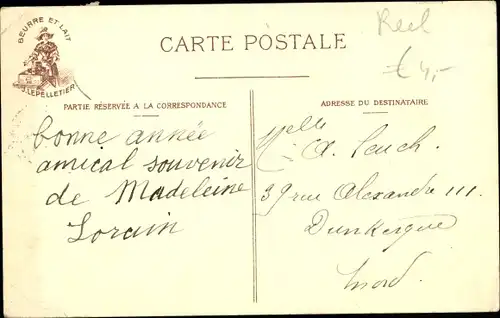 BEURRE ET LAIT
LEPELLETIER
CARTE POSTALE
€ 4,-
PARTIE RÉSERVÉE A LA CORRESPONDANCE
ADRESSE DU DESTINATAIRE
bonne année
amical souvenir
de Madeleine
Lorain
Melle
A.
39 rue Alexandre III
Dunkerque
Nord.